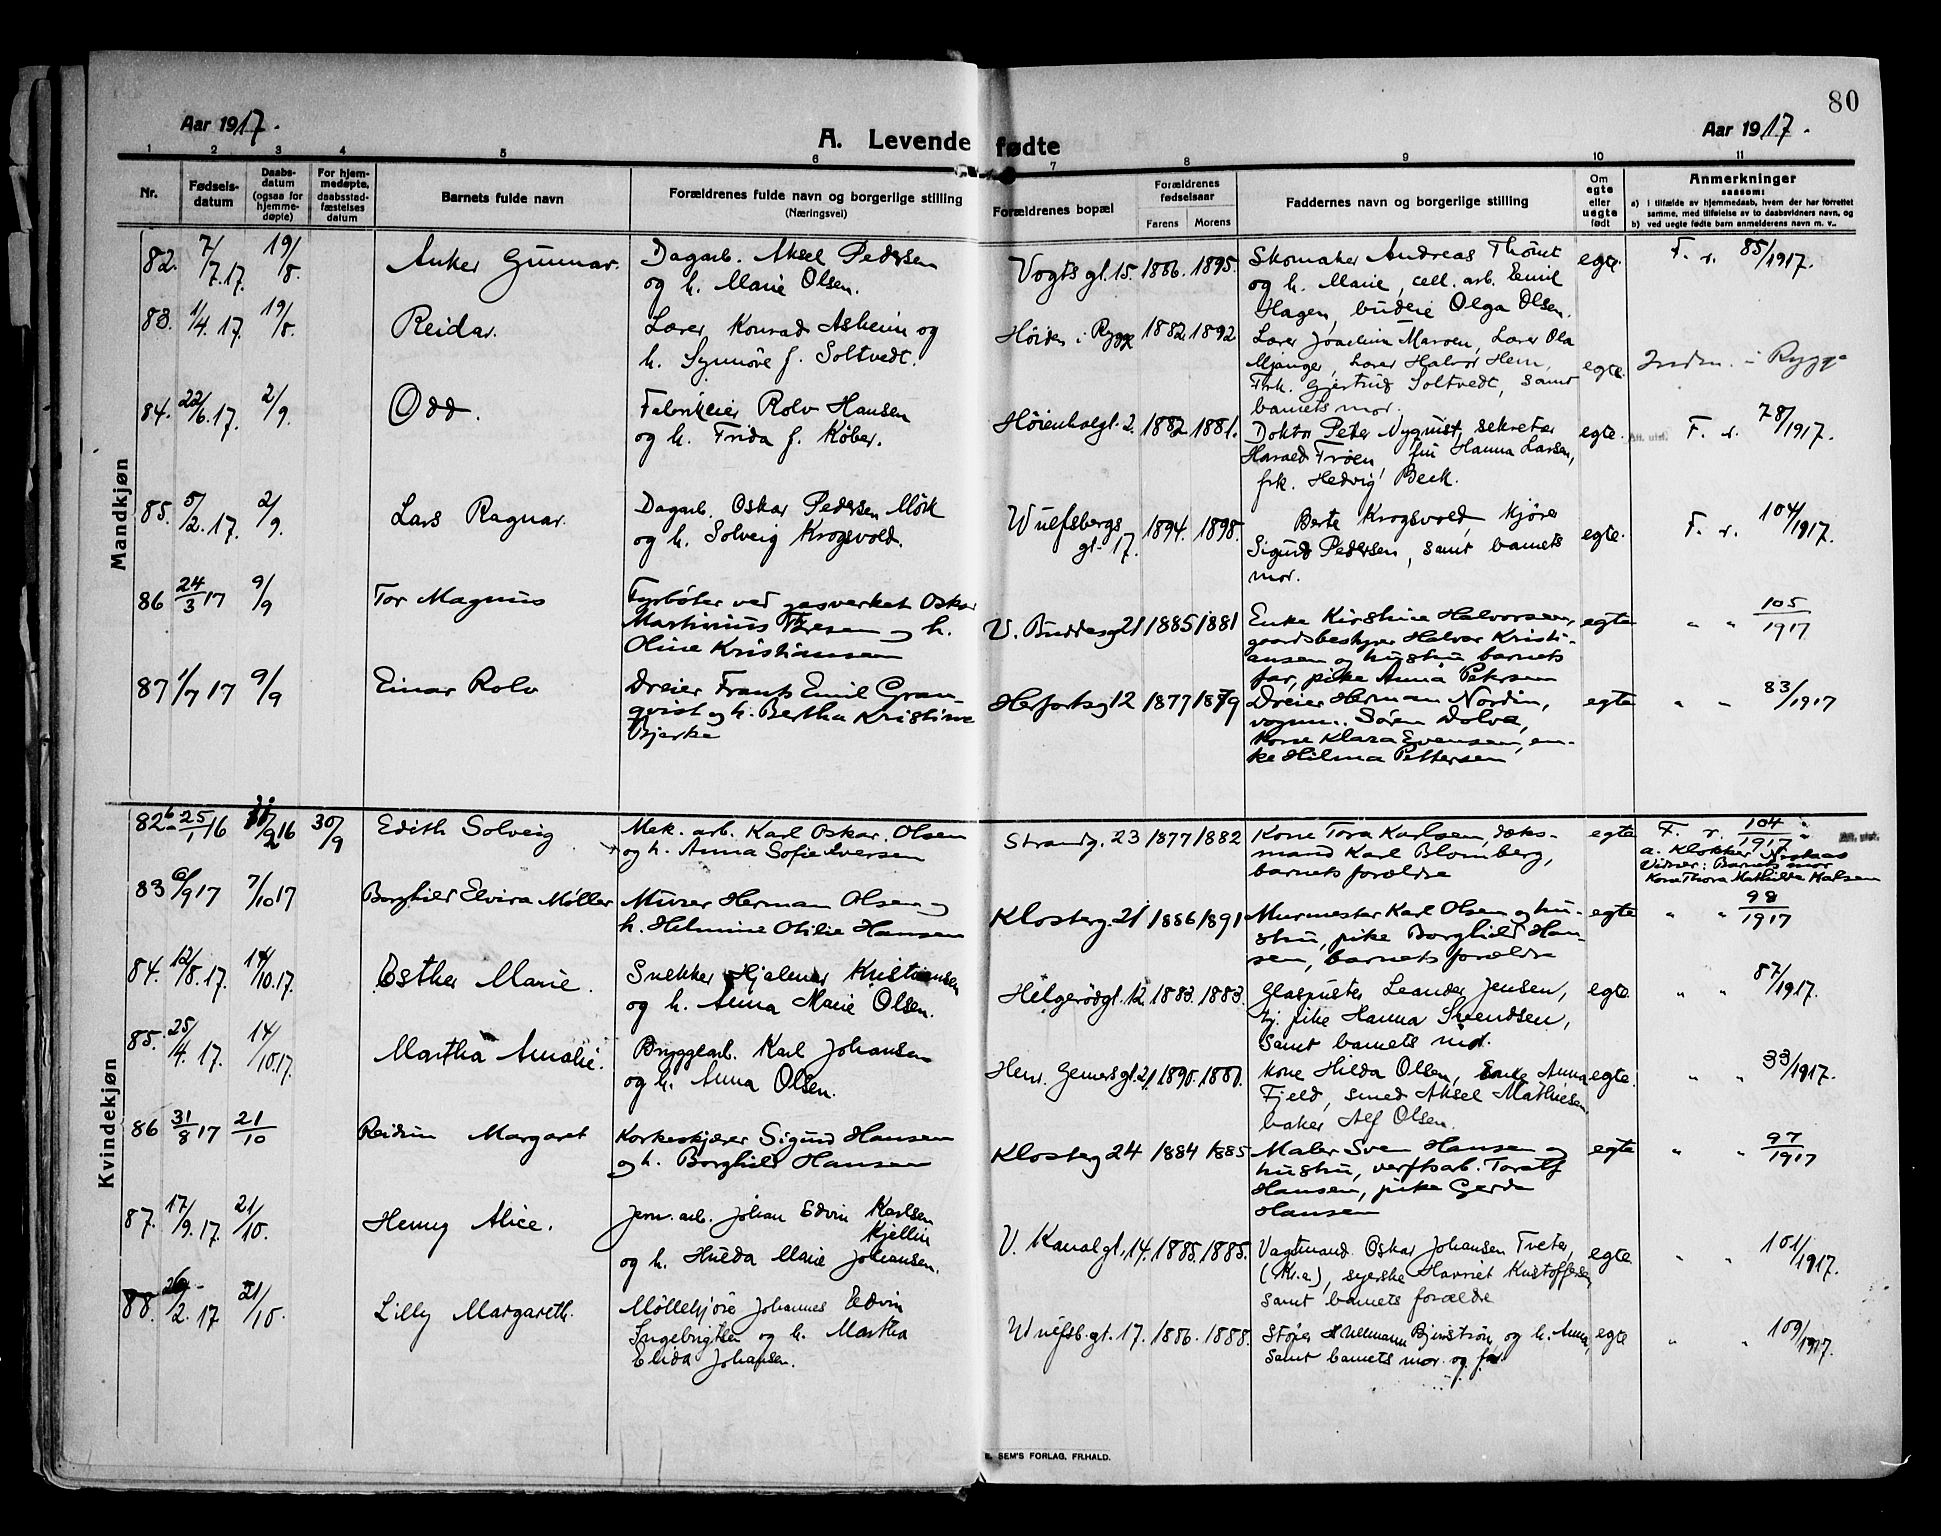 80
Aar 1917.
Aar 1917.
A. Levende fødte
1 2 3 4 5 6 7 8 9 10 11
Nr.
Fødsels-
datum
Daabs-
datum
(ogsaa for
hjemme-
døpte)
For hjem-
medøpte,
daabsstad-
fæstelses
datum
Barnets fulde navn
Forældrenes fulde navn og borgerlige stilling
(Næringsvei)
Forældrenes bopæl
Forældrenes
fødselsaar
Farens Morens
Faddernes navn og borgerlige stilling
Om
egte
eller
uegte
født
Anmerkninger
saasom:
a) i tilfælde av hjemmedaab, hvem der har forrettet
samme, med tilføielse av to daabsvidners navn, og
b) ved uegte fødte barn anmelderens navn m. v..
Mandkjøn
82. 7/7.17. 19/8. Anker Gunnar. Dagarb. Aksel Pedersen
og h. Marie Olsen.
Vogts gt. 15. 1886. 1895. Skomaker Andreas Thömt
og h. Marie, cell. arb. Emil
Hagen, budeie Olga Olsen.
egte. F. r. 85/1917.
83. 1/4. 17. 19/8. Reidar. Lærer Konrad Asheim og
h. Synnöve f. Soltvedt.
Höiden i Rygge 1882 1892 Lærer Joachim Maroen, Lærer Ola
Mjanger, Lærer Halvor Hem,
Frk. Gjertrud Soltvedt, samt
barnets mor.
egte. Indm. i Rygge
84. 22/6.17. 2/9. Odd. Fabrikeier Rolv Hansen
og h. Frida f. Köber.
Höienhalgt. 2. 1882 1881. Doktor Peter Nyquist, sekretær
Harald Tröen, fru Hanna Larsen,
frk. Hedvig Beck.
egte. Att. utst. F. r. 78/1917.
85. 5/2.17. 2/9. Lars Ragnar. Dagarb. Oskar Pedersen Mörk
og h. Solveig Krogsvold.
Wulfsbergs
gt. 17. 1894. 1898. Berte Krogsvold, kjörer
Sigurd Pedersen, samt barnets
mor.
egte. F. r. 104/1917.
86 24/3 17 9/9 Tor Magnus Fyrböter ved gasverket Oskar
Martinius Thresen og h.
Oline Kristiansen
V. Buddesg 21 1885 1881 Enke Kirstine Halvorsen,
gaardsbestyrer Halvor Kristi-
ansen og hustru barnets
far, pike Anna Petersen
egte " " 105/1917
87 1/7 17 9/9 Einar Rolv Dreier Frants Emil Gran-
qvist og h. Bertha Kristine
Bjerke
Herfortsg 12 1877 1879 Dreier Herman Nordin,
vognm. Sören Dolva,
kone Klara Evensen, en-
ke Hilma Pettersen
egte " " 83/1917
Kvindekjøn
82b 25/1 16 30/9 16 30/9 Edith Solveig Mek. arb. Karl Oskar Olsen
og h. Anna Sofie Iversen
Strandg. 23 1877 1882 Kone Tora Karlsen, dæks-
mand Karl Blomberg,
barnets forældre
egte F. r. 104/1917 Att. utst.
a. Klokker
Vidner: Barnets mor
Kone Thora Mathilda Karlsen
83 6/9 17 7/10 17 Borghild Elvira Möller Murer Herman Olsen og
h. Helmine Otilie Hansen
Klosterg. 21 1886 1891 Murmester Karl Olsen og hu-
stru, pike Borghild Han-
sen, barnets forældre
egte " " 98/1917
84. 12/8.17. 14/10.17. Esther Marie. Snekker Hjalmar Kristiansen
og h. Anna Marie Olsen.
Helgerödgt. 12. 1883. 1883. Glaspuster Leander Jensen,
tj. pike Hanna Svendsen,
samt barnets mor.
egte. " " 87/1917.
85. 25/4. 17. 14/10.17. Martha Amalie. Bryggearb. Karl Johansen
og h. Anna Olsen.
Henr. Gernersgt. 21 1890. 1887. Kone Hilda Olsen, Enke Anna
Fjeld, smed Aksel Mathiesen,
baker Alf Olsen.
egte. " " 33/1917.
86 31/8 17 21/10 Reidun Margaret Korkeskjærer Sigurd Hansen
og h. Borghild Hansen
Klosterg 24 1884 1885 Maler Sven Hansen og
hustru, verftsarb. Toralf
Hansen, pike Gerda
Hansen
egte " " 97/1917
87. 17/9.17. 21/10. Henny Alice. Jern. arb. Johan Edvin Karlsen
Kjellin
og h. Hulda Marie Johansen.
V. Kanalgt. 14. 1885. 1885. Vagtmand Oskar Johansen Tveter,
(Kr.a), syerske Harriet Kristoffersen,
samt barnets forældre
egte. " " 101/1917.
88. 26/2. 17 21/10. Lilly Margareth. Möllekjörer Johannes Edvin
Ingebrigtsen og h. Martha
Elida Johansen.
Wulfsb. gt. 17. 1886. 1888. Stöper Hillmann Björnström og h. Anna,
samt barnets mor og far
egte " " 109/1917.
E. SEM'S FORLAG, FR.HALD.